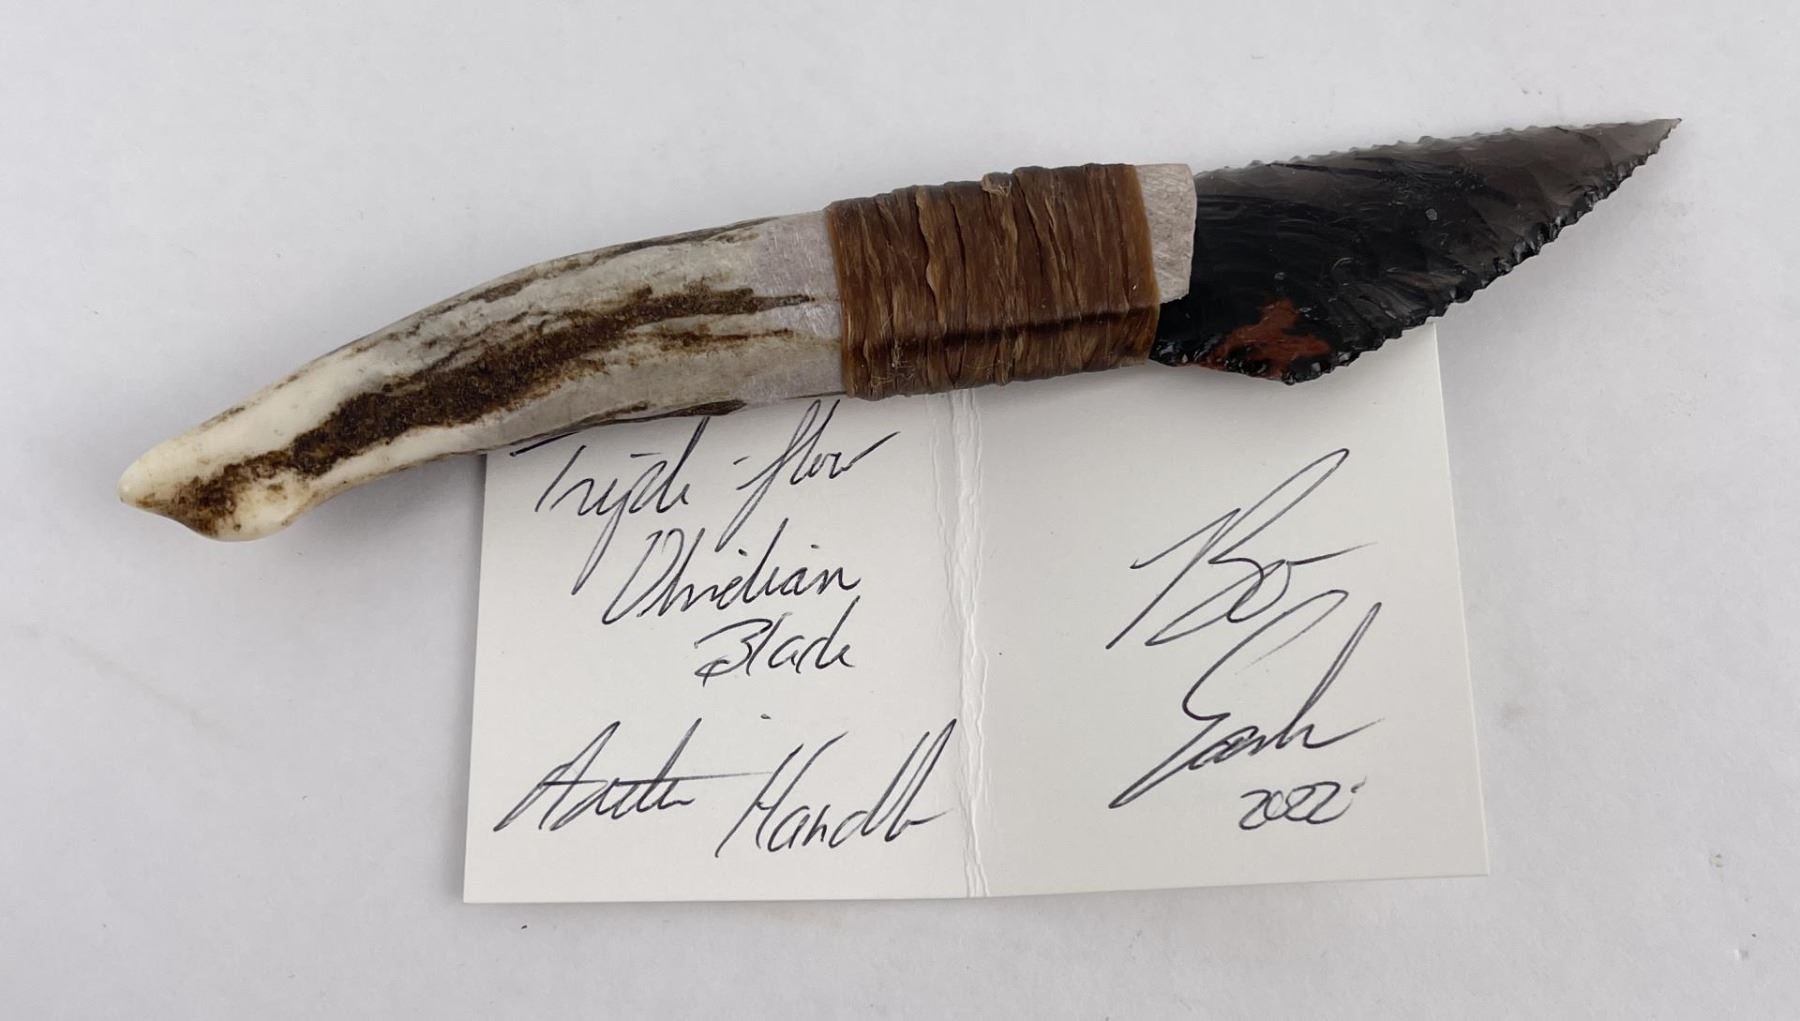 Triple-flow
Obsidian
Blade
Antler Handle
Bo
Earls
2022